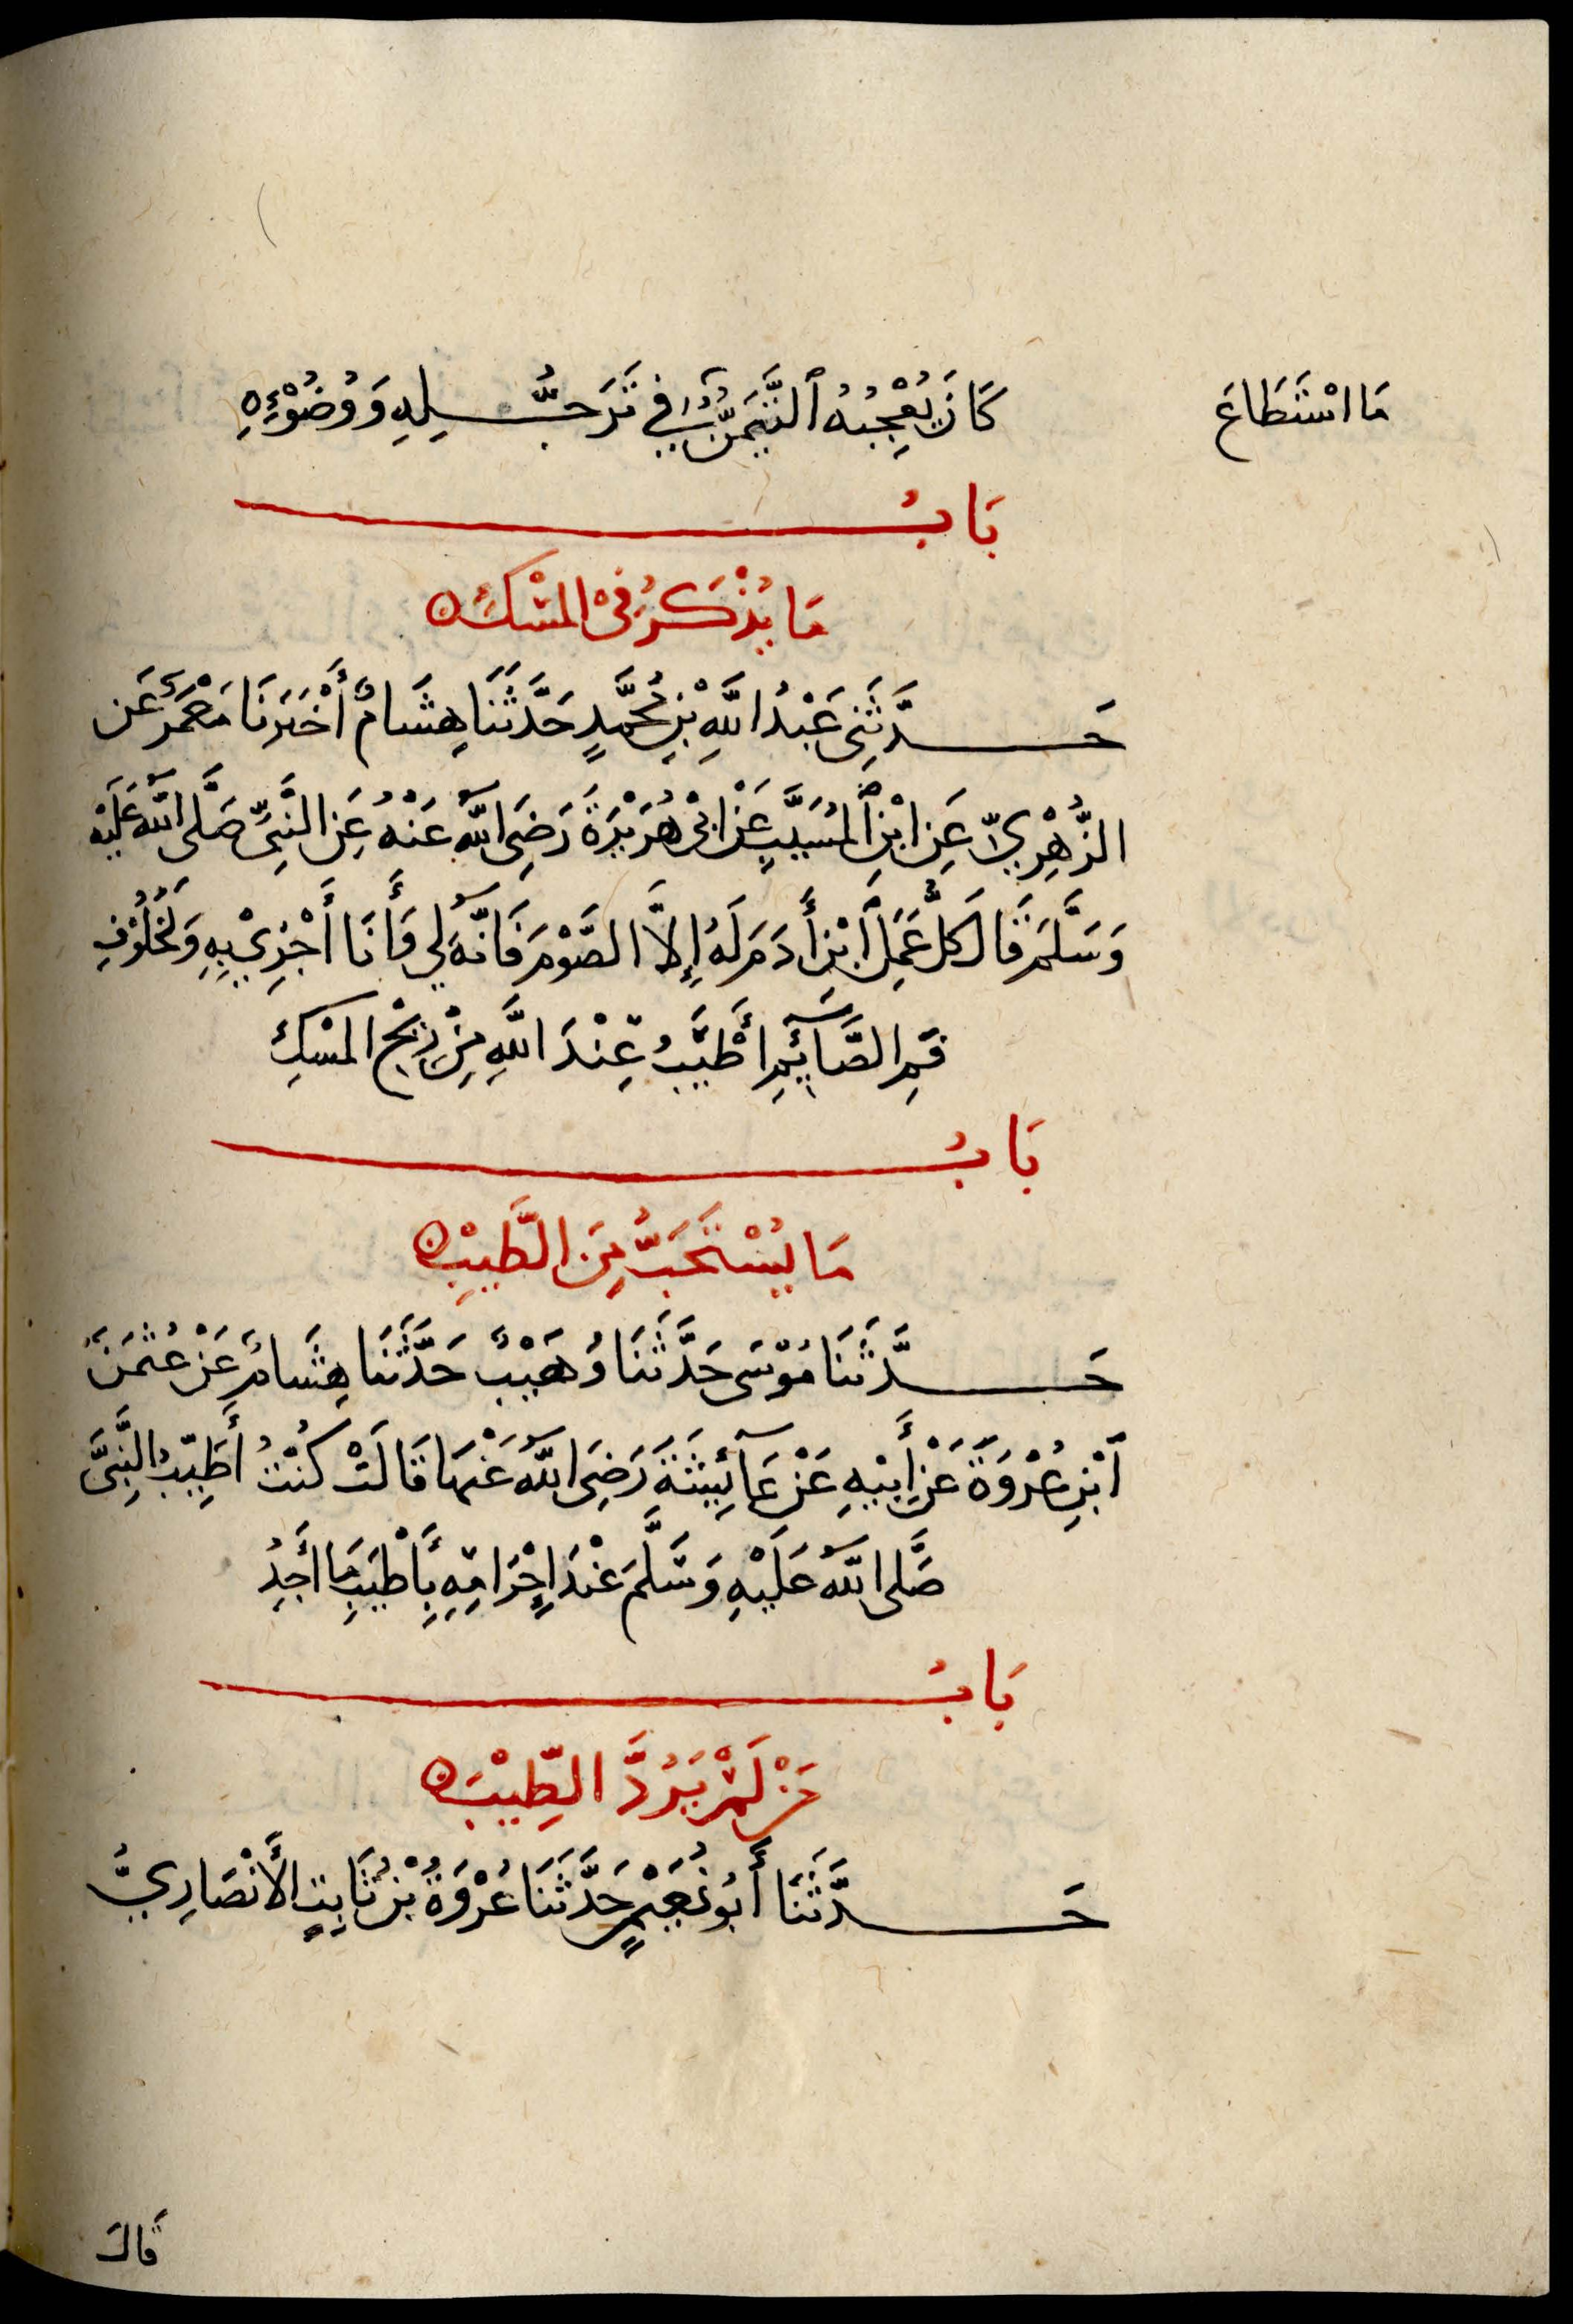 كَانَ يُعْجِبُهُ ٱلتَّيَمُّنُ فِي تَرَجُّلِهِ وَوُضُوْئِهِ
مَا اسْتَطَاعَ
بَابُ
مَا يُذْكَرُ فِىْ الْمِسْكِ
حَدَّثَنِى عَبْدُ اللَّهِ بْنُ مُحَمَّدٍ حَدَّثَنَا هِشَامٌ أَخْبَرَنَا مَعْمَرٌ عَن
الزُّهْرِيِّ عَنِ ابْنِ ٱلْمُسَيَّبِ عَنْ ابِىْ هُرَيْرَةَ رَضِىَ اللَّهُ عَنْهُ عَنِ النَّبِىِّ صَلَّى اللَّهُ عَلَيْهِ
وَسَلَّمَ قَالَ كُلُّ عَمَلِ ٱبْنِ أَدَمَ لَهُ إِلاَّ الصَّوْمَ فَانَّهُ لِي وَأَنَا أَجْزِيْ بِهِ وَلَخُلُوْفِ
فَمِ الصَّآئِمِ أَطْيَبُ عِنْدَ اللَّهِ مِنْ رِيْحِ الْمِسْكِ
بَابُ
مَا يُسْتَحَبُّ مِنَ الطِّيبِ
حَدَّثَنَا مُوْسَى حَدَّثَنَا وُهَيْبٌ حَدَّثَنَا هِشَامٌ عَنْ عُثْمَنَ
ٱبْنِ عُرْوَةَ عَنْ أَبِيْهِ عَنْ عَآئِشَةَ رَضِىَ اللَّهُ عَنْهَا قَالَتْ كُنْتُ أُطَيِّبُ النَّبِىَّ
صَلَّى اللَّهُ عَلَيْهِ وَسَلَّمَ عِنْدَ إِحْرَامِهِ بِأَطْيَبِ مَا أَجِدُ
بَابُ
مَنْ لَمْ يَرُدَّ الطِّيْبَ
حَدَّثَنَا أَبُو نُعَيْمٍ حَدَّثَنَا عُرْوَةُ بْنُ ثَابِتٍ الأَنْصَارِيُّ
قَالَ